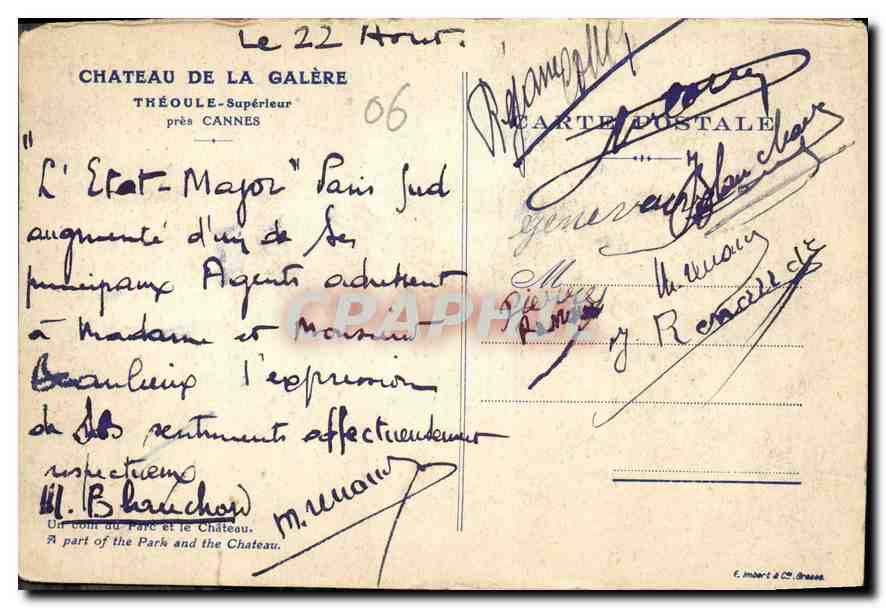 Le 22 Aout.
CHATEAU DE LA GALÈRE
THÉOULE-Supérieur
près CANNES
06
"L'Etat-Major" Paris Sud
augmenté d'un de ses
principaux Agents adressent
à Madame et Monsieur
Beaulieux l'expression
de ses sentiments affectueusement
respectueux
M. Blanchard
M. renaud
Un coin du Parc et le Château.
A part of the Park and the Chateau.
CARTE POSTALE
Blanchard
M
Pierre
M. renaud
E. Imbert & Cie, Grasse.
CPARAMA